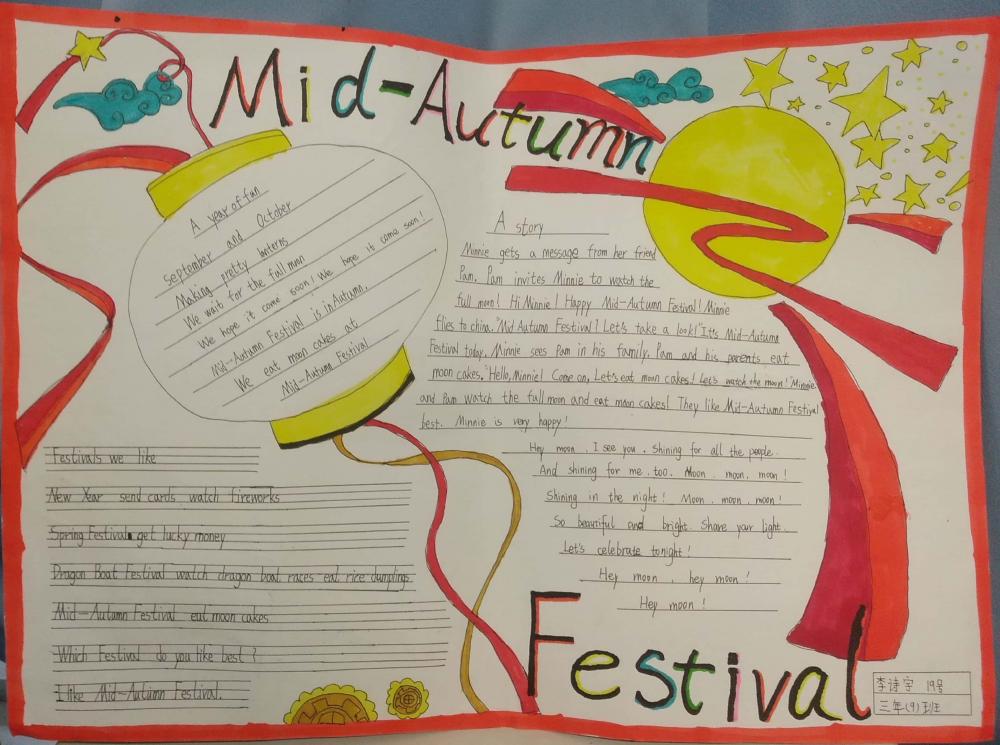 Mid-Autumn
A year of fun
September and October
Making pretty lanterns
We wait for the full moon
We hope it come soon! We hope it come soon!
Mid-Autumn Festival is in Autumn.
We eat moon cakes at
Mid-Autumn Festival
Festivals we like
New Year send cards watch fireworks
Spring Festival get lucky money
Dragon Boat Festival watch dragon boat races eat rice dumplings
Mid-Autumn Festival eat moon cakes
Which Festival do you like best?
I like Mid-Autumn Festival.
A story
Minnie gets a message from her friend
Pam. Pam invites Minnie to watch the
full moon! Hi Minnie! Happy Mid-Autumn Festival! Minnie
flies to china. "Mid Autumn Festival? Let's take a look!" It's Mid-Autumn
Festival today. Minnie sees Pam in his family. Pam and his parents eat
moon cakes. "Hello, Minnie! Come on, Let's eat moon cakes! Let's watch the moon!" Minnie
and Pam watch the full moon and eat moon cakes! They like Mid-Autumn Festival
best. Minnie is very happy!
Hey moon, I see you. Shining for all the people.
And shining for me, too. Moon, moon, moon!
Shining in the night! Moon, moon, moon!
So beautiful and bright. Share your light.
Let's celebrate tonight!
Hey moon, hey moon!
Hey moon!
Festival
李诗宇 19号
三年(9)班